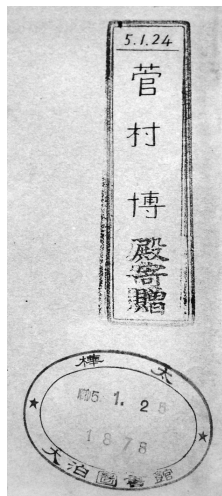 5.1.24
菅村博殿寄贈
樺太
昭5.1.25
1878
大泊図書館